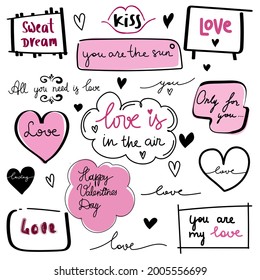 sweat
dream
kiss
LOVE
you are the sun
All you need is love
you
Only for
you...
Love
love is
in the air
love
Happy
Valentines
Day
love
LOVE
love
you are
my love
shutterstock.com · 2005556699